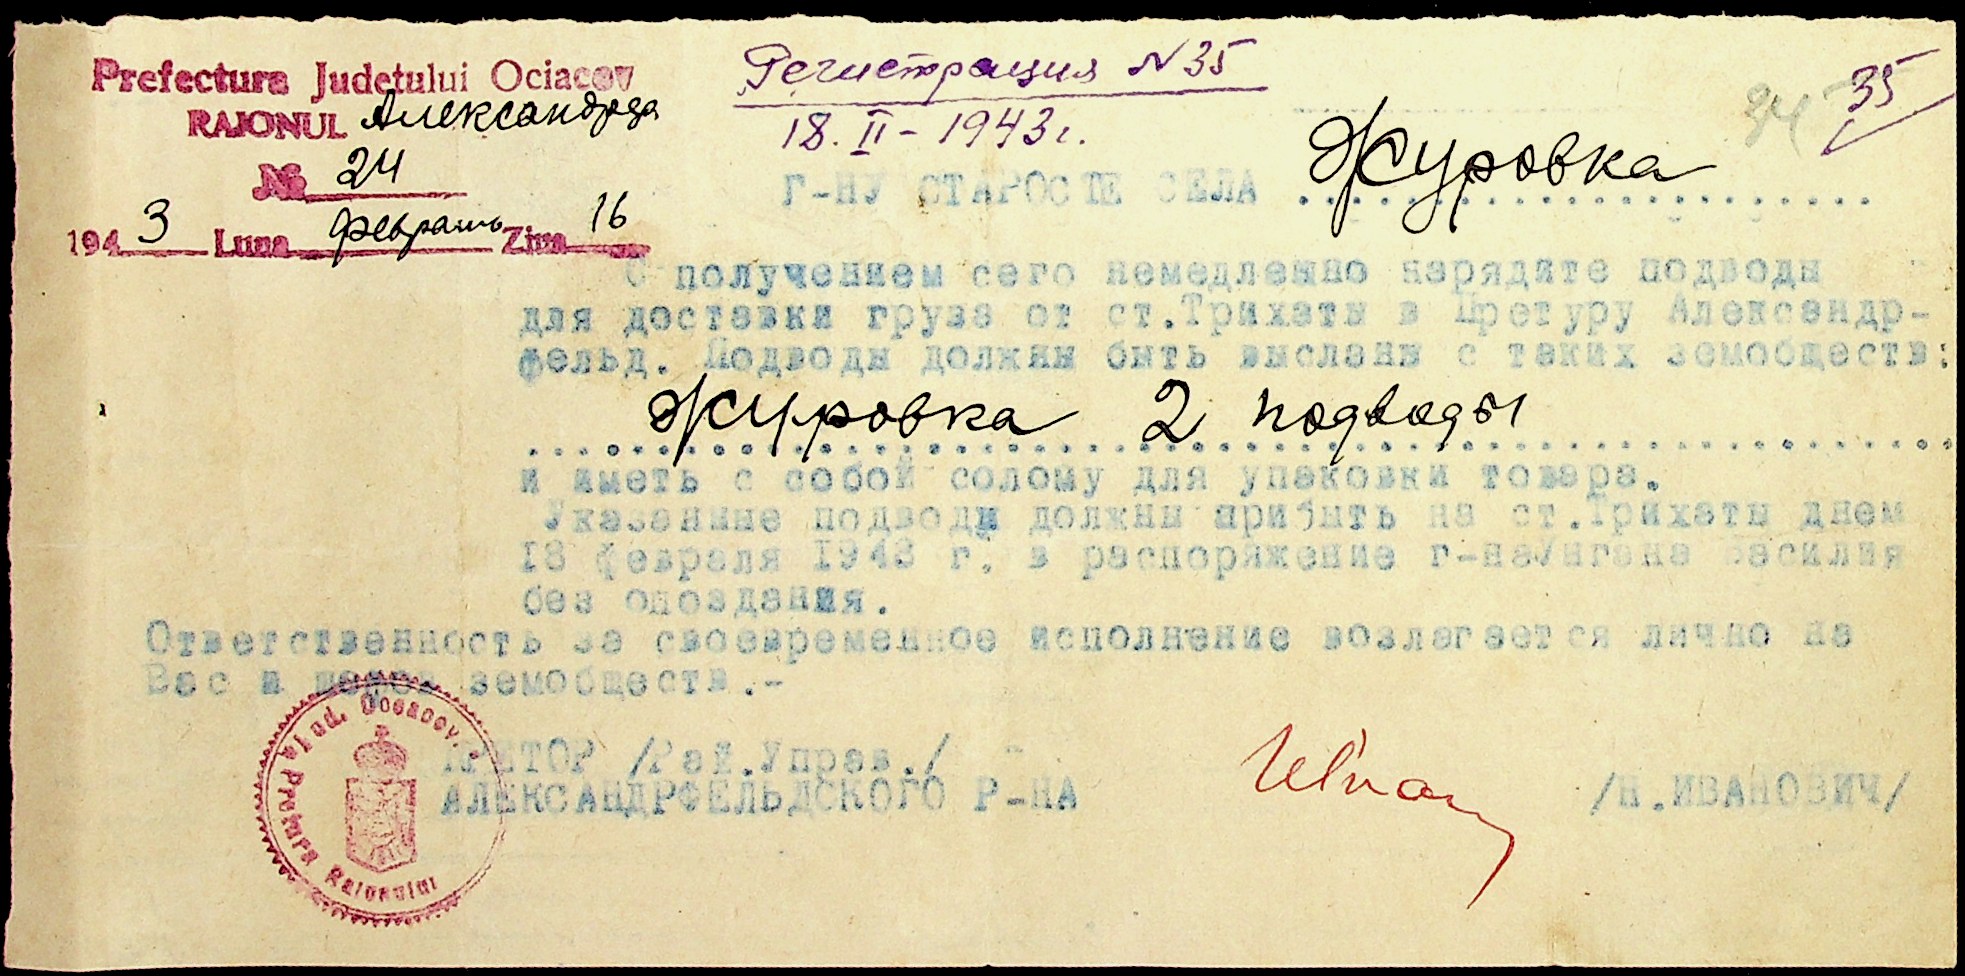 Prefectura Judeţului Ociacov
RAIONUL Александрфельда
№ 24
1943 Luna февраль Ziua 16
Регистрация N 35
18. II - 1943 г.
34 35
Г-НУ СТАРОСТЕ СЕЛА Журовка
С получением сего немедленно нарядите подводы
для доставки груза от ст.Трихаты в Претуру Александр-
фельд. Подводы должны быть высланы с таких земобществ:
Журовка 2 подводы
и иметь с собой солому для упаковки товара.
Указанные подводы должны прибыть на ст.Трихаты днем
18 февраля 1943 г. в распоряжение г-на Унгана Василия
без опоздания.
Ответственность за своевременное исполнение возлагается лично на
Вас и шефов земобществ.-
ПРЕТОР /Рай.Управ./
АЛЕКСАНДРФЕЛЬДСКОГО Р-НА
/Н.ИВАНОВИЧ/
Jud. Oceacov.
Pretura Raionului